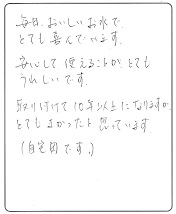 毎日、おいしいお水で、
とても喜んでいます。
安心して使えることがとても
うれしいです。
取り付けて10年以上になりますが、
とてもよかったと思っています
(自宅用です。)